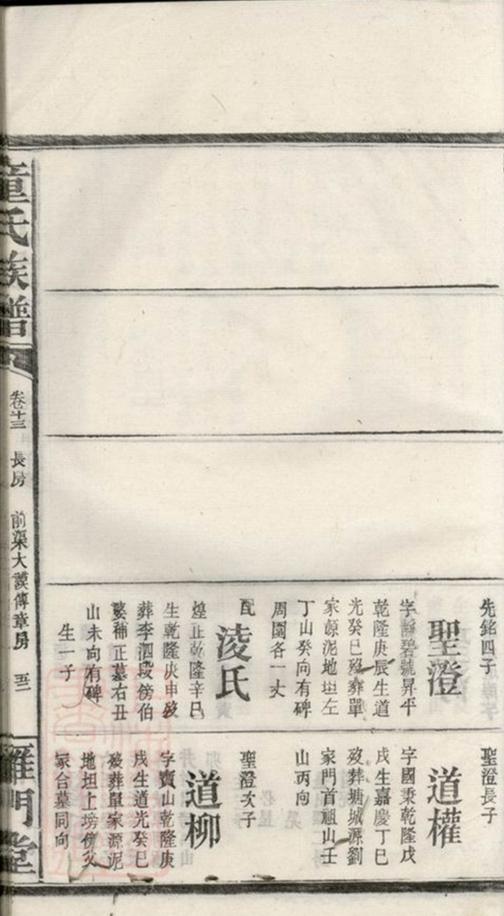 先銘四子
聖澄
字靜碧號昇平
乾隆庚辰生道
光癸巳歿葬單
家源泥地坦左
丁山癸向有碑
周圍各一丈
配
淩氏
煌正乾隆辛巳
生乾隆庚申歿
葬李泗段傍伯
婺稀正墓右丑
山未向有碑
生一子
聖澄長子
道權
字國秉乾隆戊
戌生嘉慶丁巳
歿葬塘城源劉
家門首祖山壬
山丙向
聖澄次子
道柳
字寶山乾隆庚
戌生道光癸巳
歿葬單家源泥
地坦上塝傍父
冢合墓同向
童氏族譜
卷十三
長房
前渠大謨傳章房
五二
雁門堂